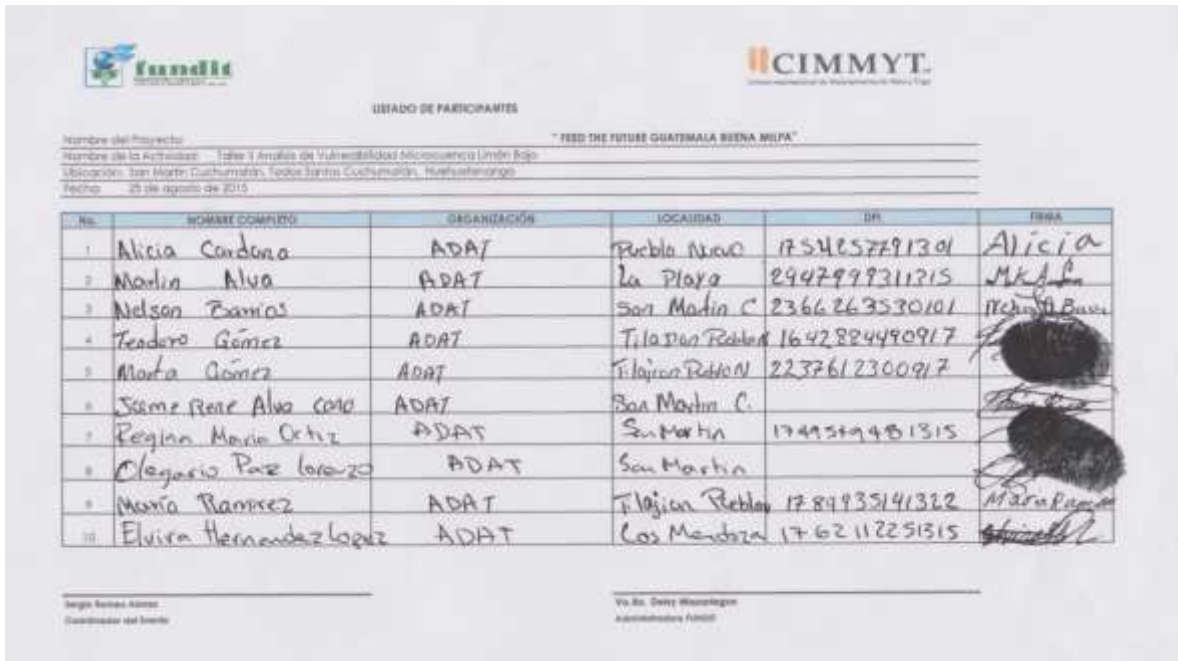 fundit
CIMMYT.
LISTADO DE PARTICIPANTES
Nombre del Proyecto: " FEED THE FUTURE GUATEMALA BUENA MILPA"
Nombre de la Actividad: Taller II Analisis de Vulnerabilidad Microcuenca Limón Bajo
Ubicación: San Martín Cuchumatán, Todos Santos Cuchumatán, Huehuetenango
Fecha: 25 de agosto de 2015
No. NOMBRE COMPLETO ORGANIZACIÓN LOCALIDAD DPI FIRMA
1 Alicia Cardona ADAT Pueblo Nuevo 1754257791301 Alicia
2 Marlin Alva ADAT La Playa 2947999311315
3 Nelson Barrios ADAT San Martin C 2366263530101
4 Teodoro Gómez ADAT 1642884490917
5 Marta Gómez ADAT 2237612300917
6 Jaime Rene Alva ADAT San Martin C.
7 Regina Maria Ortiz ADAT San Martin 1749549481315
8 Olegario Paz Lorenzo ADAT San Martin
9 María Ramirez ADAT 1789935141322
10 Elvira Hernandez Lopez ADAT Los Mendoza 1762112251315
Sergio Romeo Alonzo Vo.Bo. Deisy
Coordinador del Evento Administradora FUNDIT